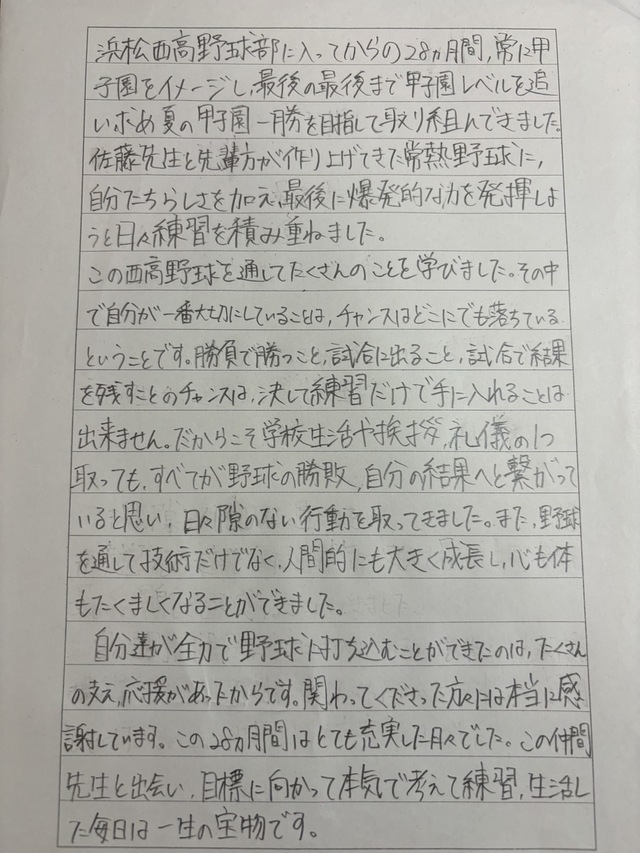 浜松西高野球部に入ってからの28ヵ月間,常に甲
子園をイメージし,最後の最後まで甲子園レベルを追
い求め夏の甲子園一勝を目指して取り組んできました。
佐藤先生と先輩方が作り上げてきた常熱野球に,
自分たちらしさを加え,最後に爆発的な力を発揮しよ
うと日々練習を積み重ねました。
この西高野球を通してたくさんのことを学びました。その中
で自分が一番大切にしていることは,チャンスはどこにでも落ちている
ということです。勝負で勝つこと,試合に出ること,試合で結果
を残すことのチャンスは,決して練習だけで手に入れることは
出来ません。だからこそ学校生活や挨拶,礼儀の1つ
取っても,すべてが野球の勝敗,自分の結果へと繋がって
いると思い,日々隙のない行動を取ってきました。また,野球
を通して技術だけでなく,人間的にも大きく成長し,心も体
もたくましくなることができました。
自分達が全力で野球に打ち込むことができたのは,たくさん
の支え,応援があったからです。関わってくださった方々には本当に感
謝しています。この28ヵ月間はとても充実した月々でした。この仲間
先生と出会い,目標に向かって本気で考えて練習,生活し
た毎日は一生の宝物です。